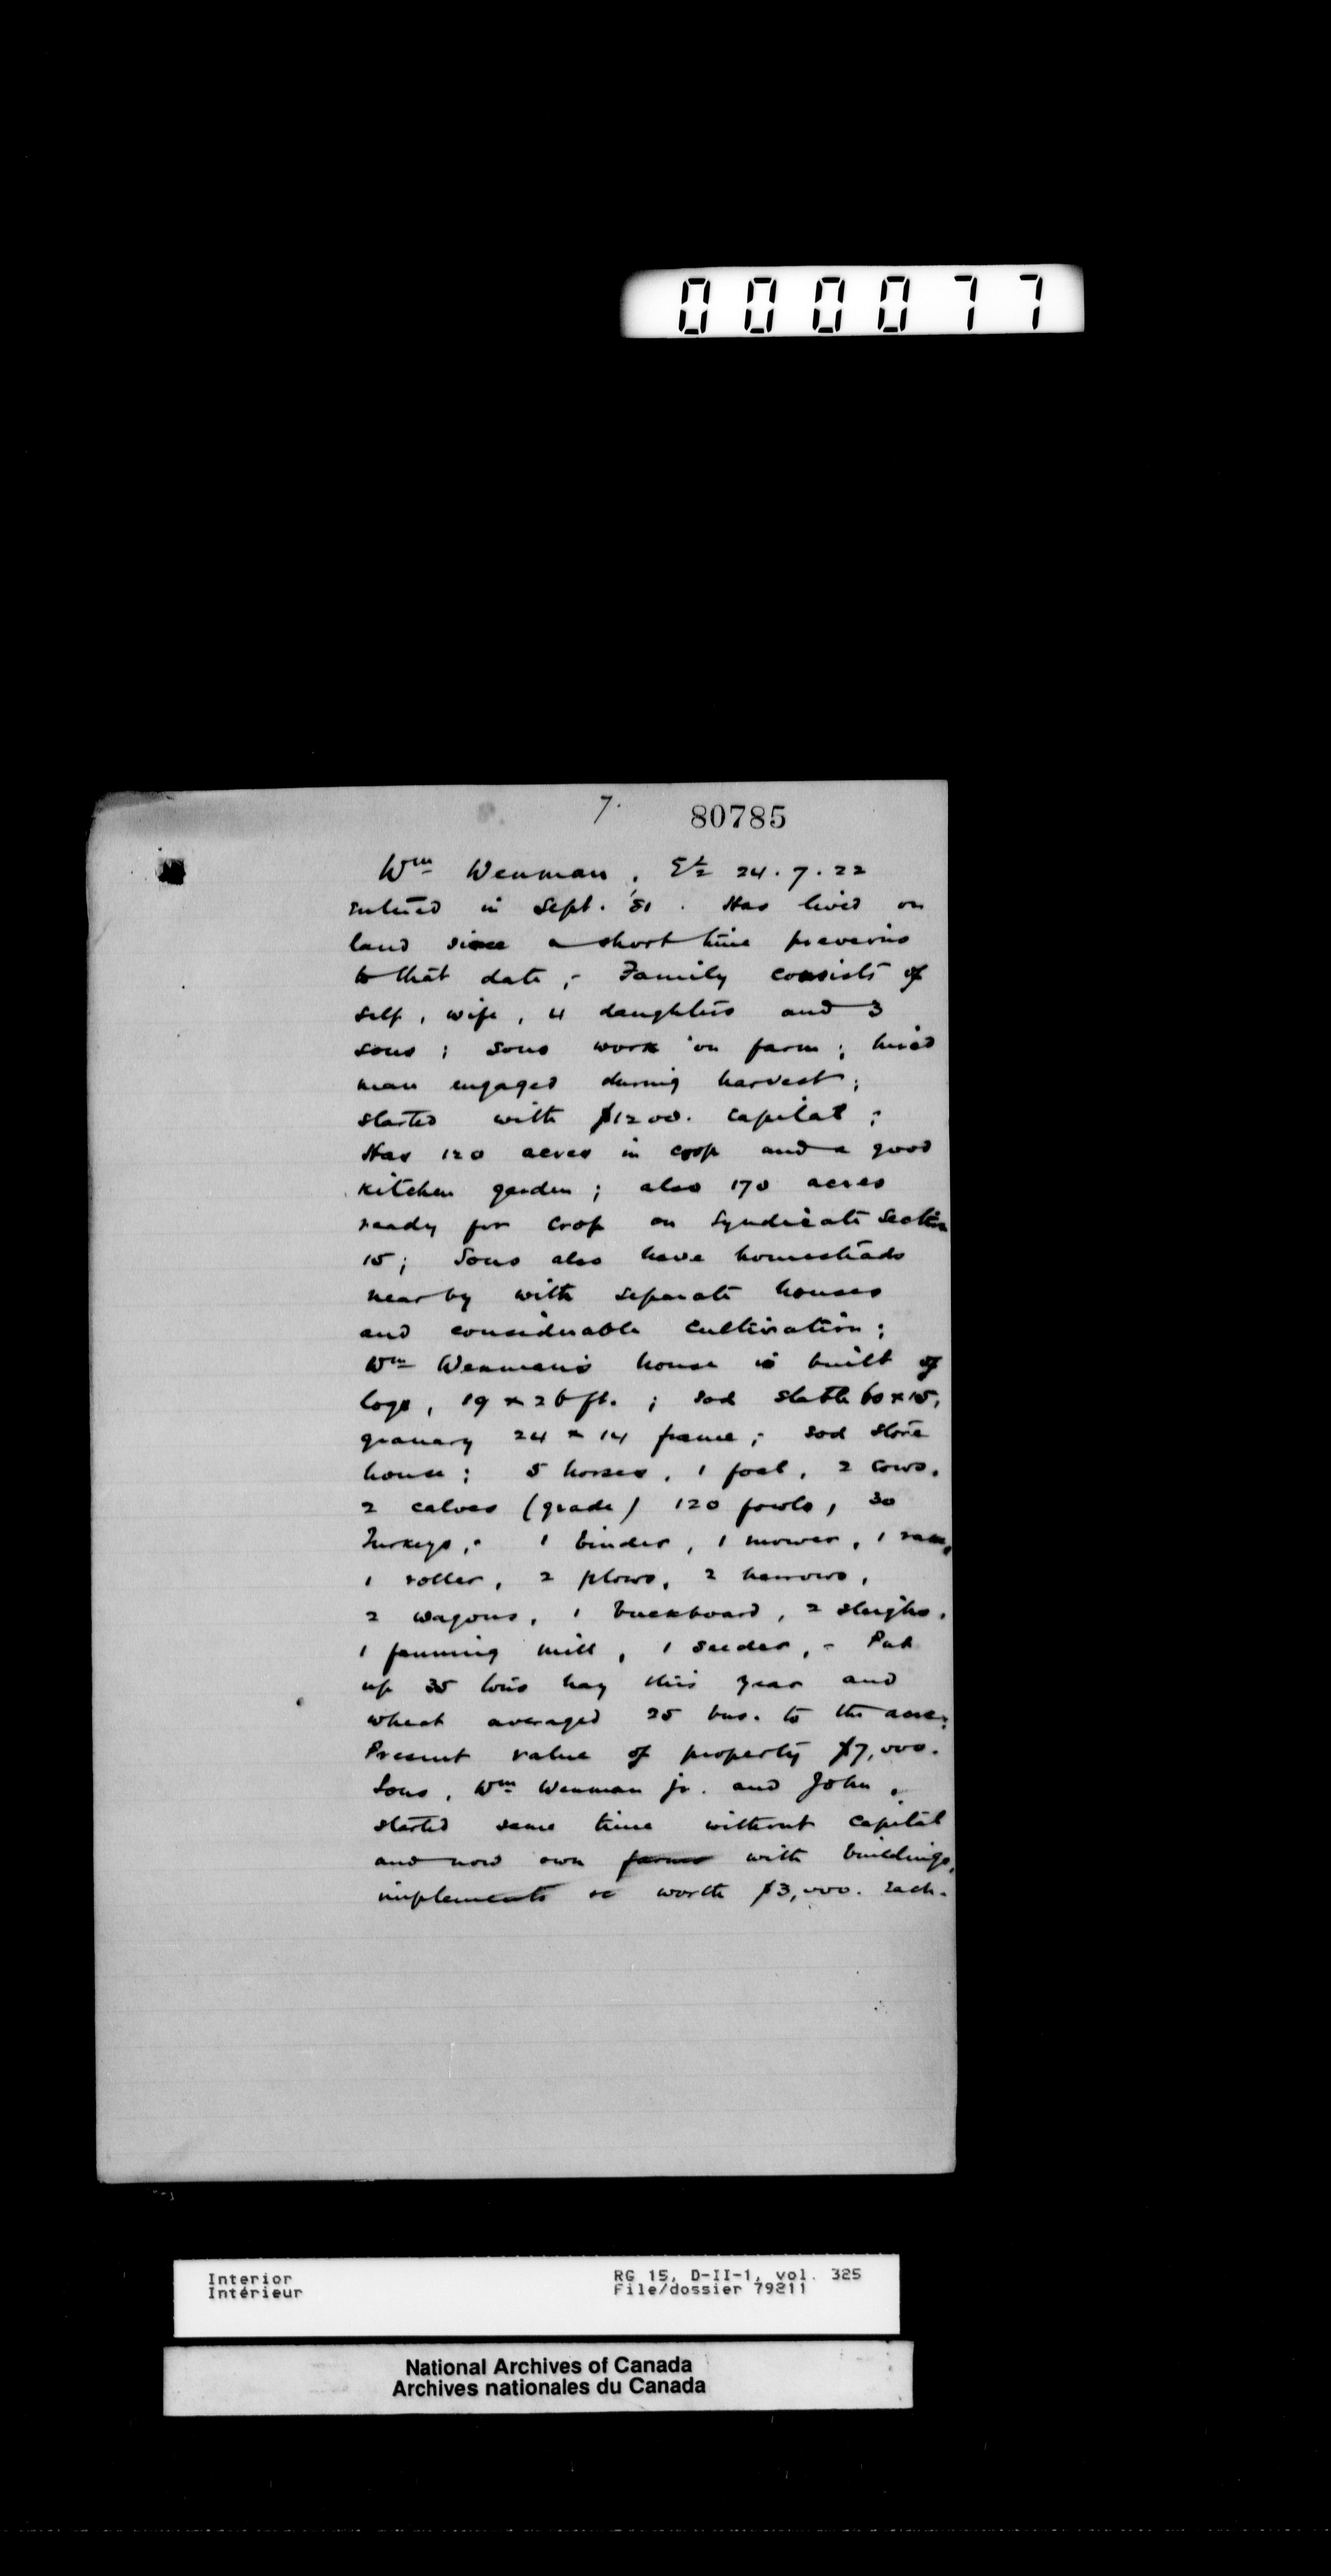 000077
7. 80785
Wm Wenman, E½ 24.7.22
entered in Sept. '81. Has lived on
land since a short time previous
to that date; Family consists of
self, wife, 4 daughters and 3
sons; sons work on farm; hired
man engaged during harvest;
started with $1200. capital;
Has 120 acres in crop and a good
kitchen garden; also 170 acres
ready for crop on Syndicate Section
15; Sons also have homesteads
near by with separate houses
and considerable cultivation;
Wm Wenman's house is built of
logs, 19 x 26 ft.; sod stable 60 x 15,
granary 24 x 14 frame; sod store
house; 5 horses, 1 foal, 2 cows,
2 calves (grade) 120 fowls, 30
Turkeys,- 1 binder, 1 mower, 1 rake,
1 roller, 2 plows, 2 harrows,
2 wagons, 1 buckboard, 2 sleighs,
1 fanning mill, 1 seeder,- Put
up 35 tons hay this year and
wheat averaged 25 bus. to the acre;
Present value of property $7,000.
Sons, Wm Wenman jr. and John,
started same time without capital
and now own farms with buildings,
implements &c worth $3,000. each.
Interior RG 15, D-II-1, vol. 325
Intérieur File/dossier 79211
National Archives of Canada
Archives nationales du Canada